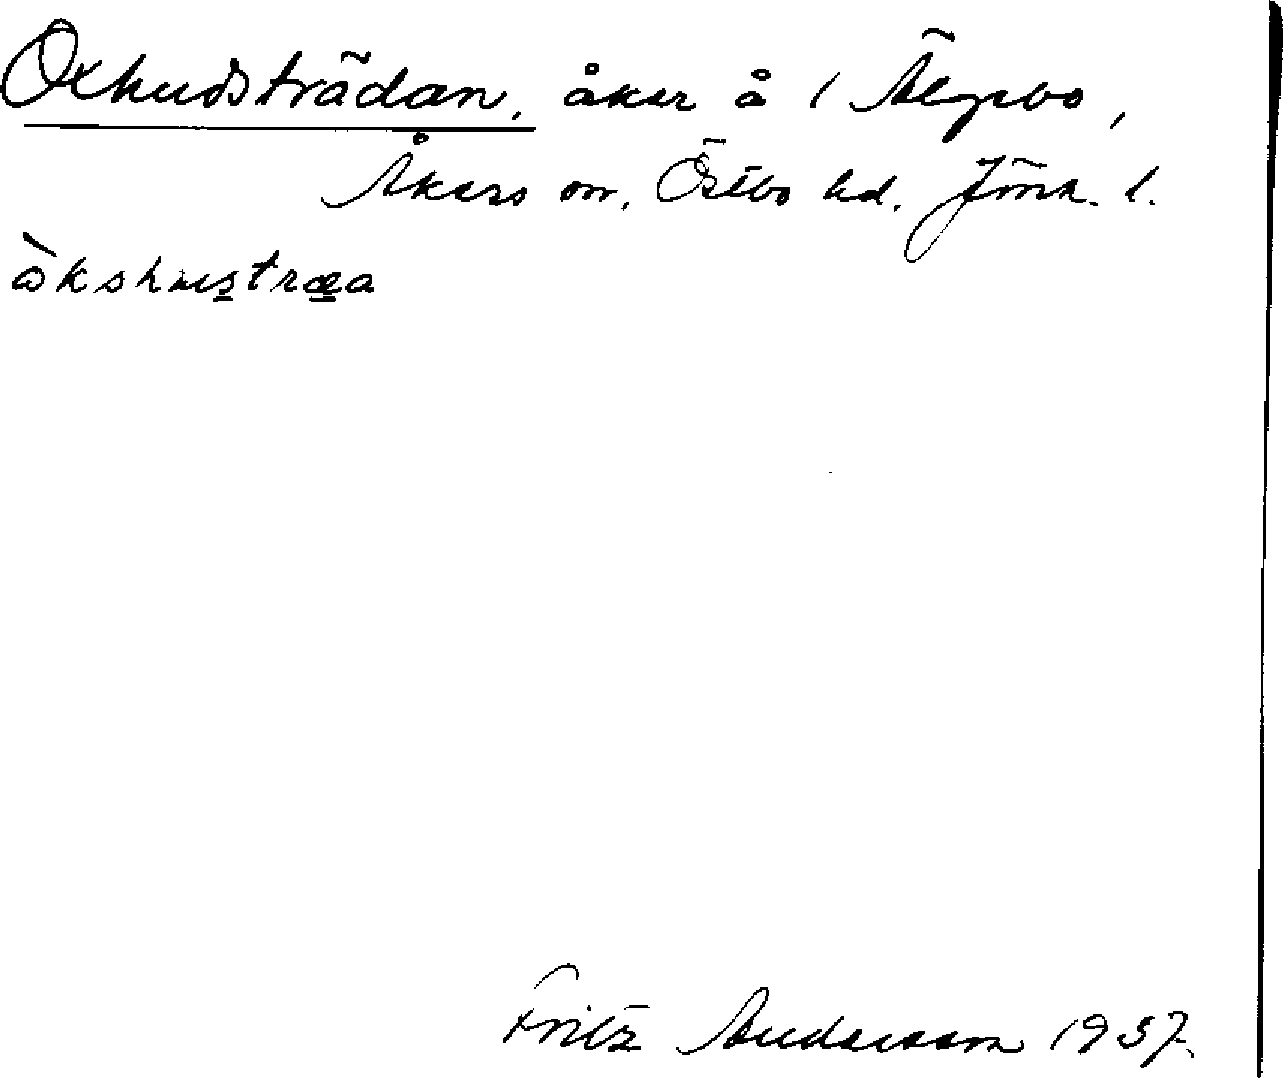 Oxhudsträdan, åker å 1 Älgabo,
Åkers sn, Östbo hd. Jönk. l.
òkshusträa
Fritz Andersson 1937.